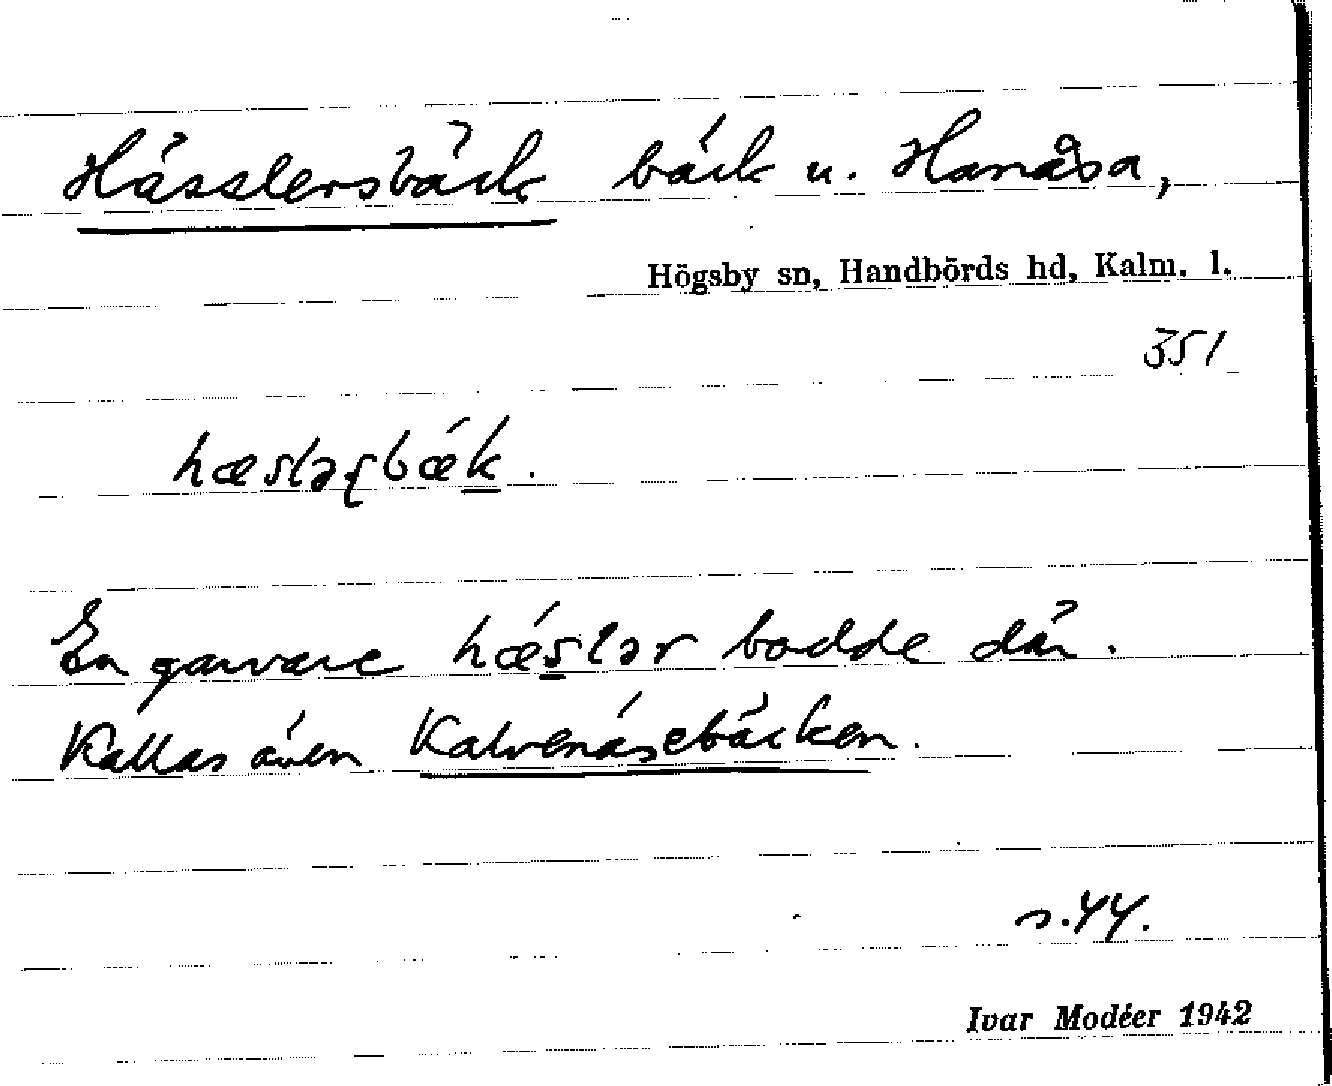 Hässlersbäck bäck u. Hanåsa,
Högsby sn, Handbörds hd, Kalm. l.
351
hæslərʂbǽk.
En garvare hǽslər bodde där.
Kallas även Kalvenäsebäcken.
s. 44.
Ivar Modéer 1942